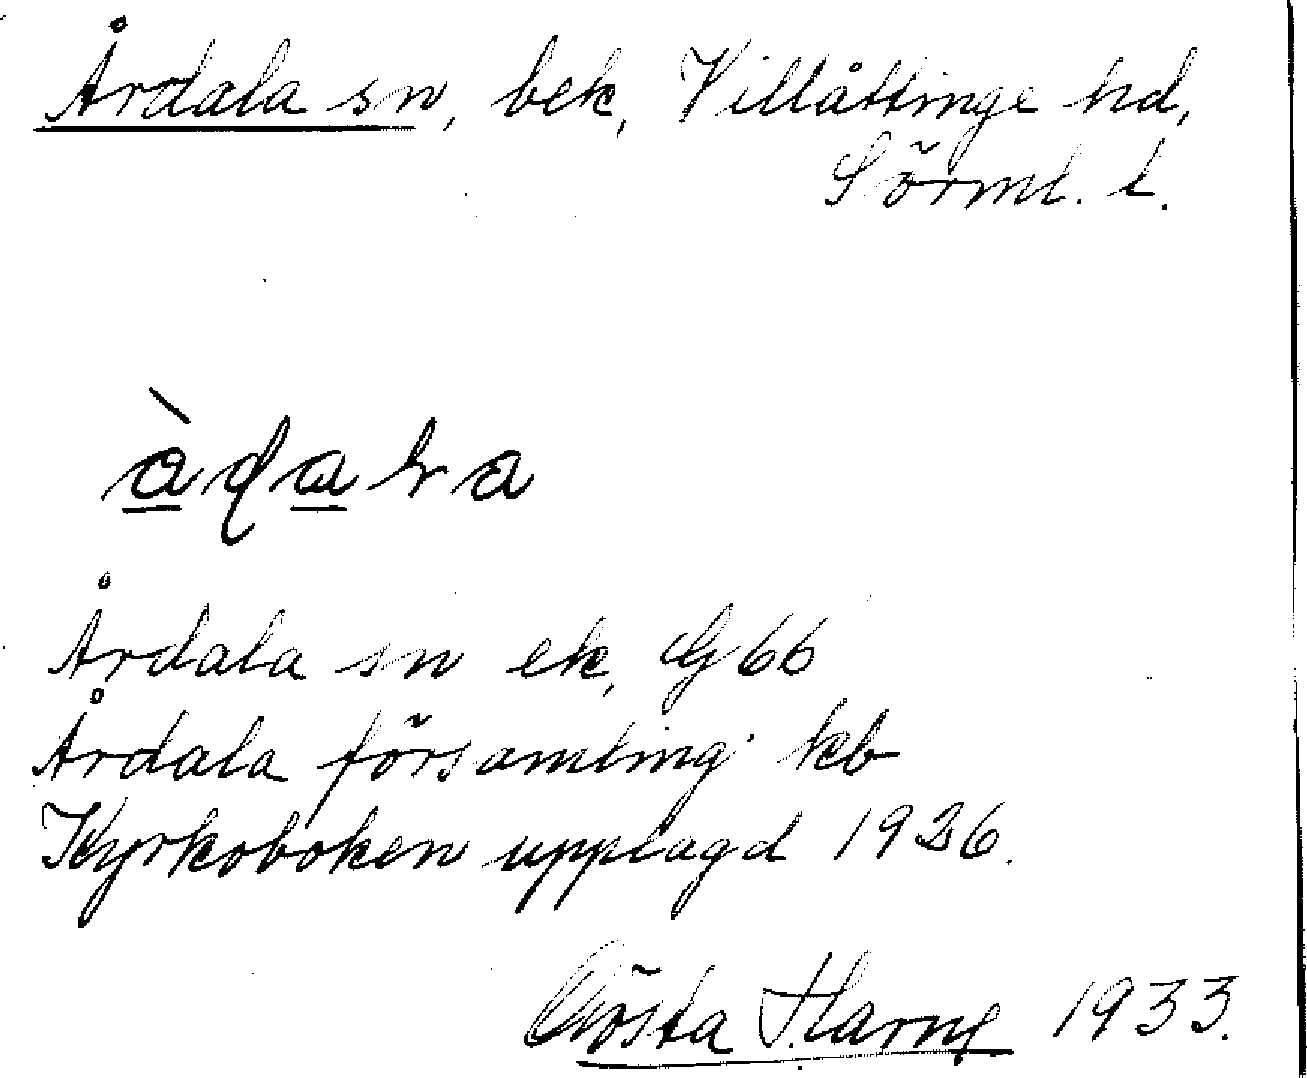 Årdala sn, bek, Villåttinge hd,
Sörml. l.
Årdala sn ek, G 66
Årdala församling kb
Kyrkoboken upplagd 1926.
Gösta 1933.